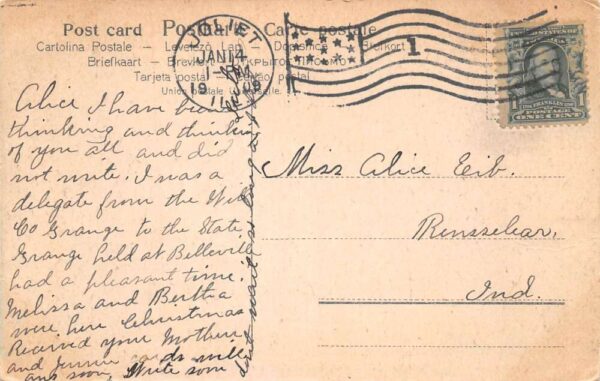 Post card Postkarte Carte postale
Cartolina Postale — Levelező Lap — Dopisnice — Briefkort
Briefkaart — Brevkort — Открытое письмо
Tarjeta postal —
JOLIET
JAN 17
1 - PM
19 08
ILL.
1
1
DR. FRANKLIN
POSTAGE
ONE CENT
Alice I have been
thinking and thinking
of you all and did
not write. I was a
delegate from the Will
Co Grange to the State
Grange held at Belleville
had a pleasant time.
Melissa and Bertha
were here Christmas
Received your Mothers
and cards will
ans soon, Write soon
dont wait so long as I
Miss Alice Eib.
Rensselear,
Ind.